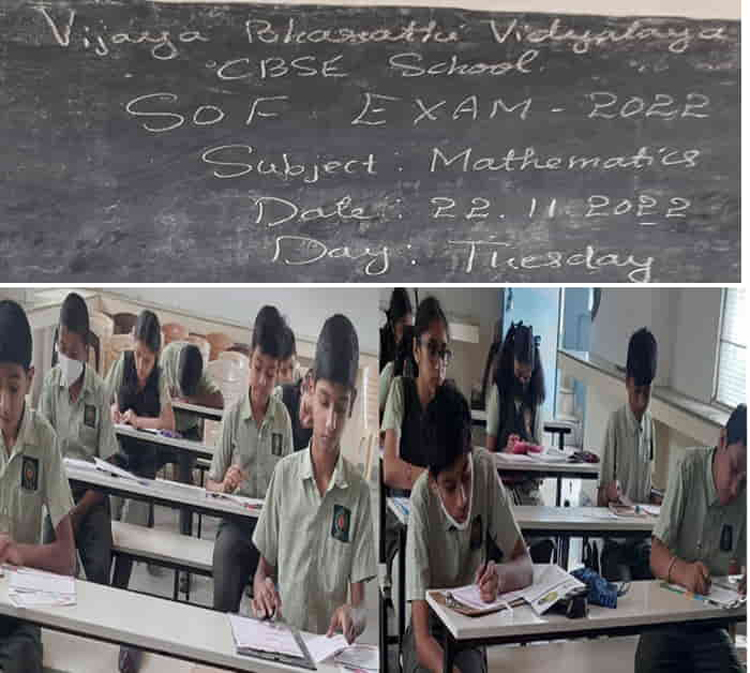 Vijaya Bharathi Vidyalaya
CBSE School.
SOF EXAM - 2022
Subject : Mathematics
Date : 22.11.2022
Day : Tuesday